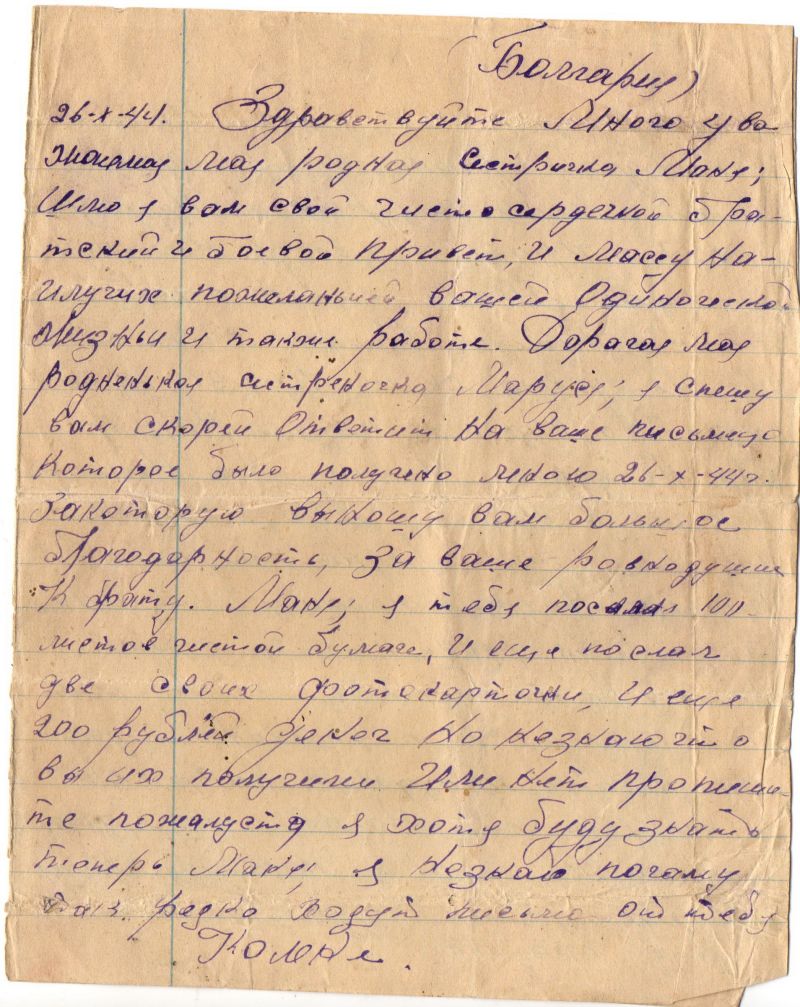 (Болгария)
26-X-44. Здравствуйте Много ува
жаемая моя родная сестричка Маня;
Шлю я вам свой чистосердечной бра-
тский и боевой привет, и массу на-
илучих пожеланьией вашей Одинокеской
жизньи и также работе. Дорогая моя
родненькая сетреночка Маруся; я спешу
вам скорей Ответит на ваше письмецо
которое было получено мною 26-X-44г.
Закоторую выношу вам большое
благодарность, За ваше равнодушие
К брату. Маня; я тебя послал 100
листов чистой бумаги, И еще послал
две своих фотокарточки, И еще
200 рублей денег но незнаю что
вы их получили Или нет пропиши-
те пожалуста я хотя буду знать
теперь Маня; я незнаю почаму
так редко ходут письмо от тебя
Комне.